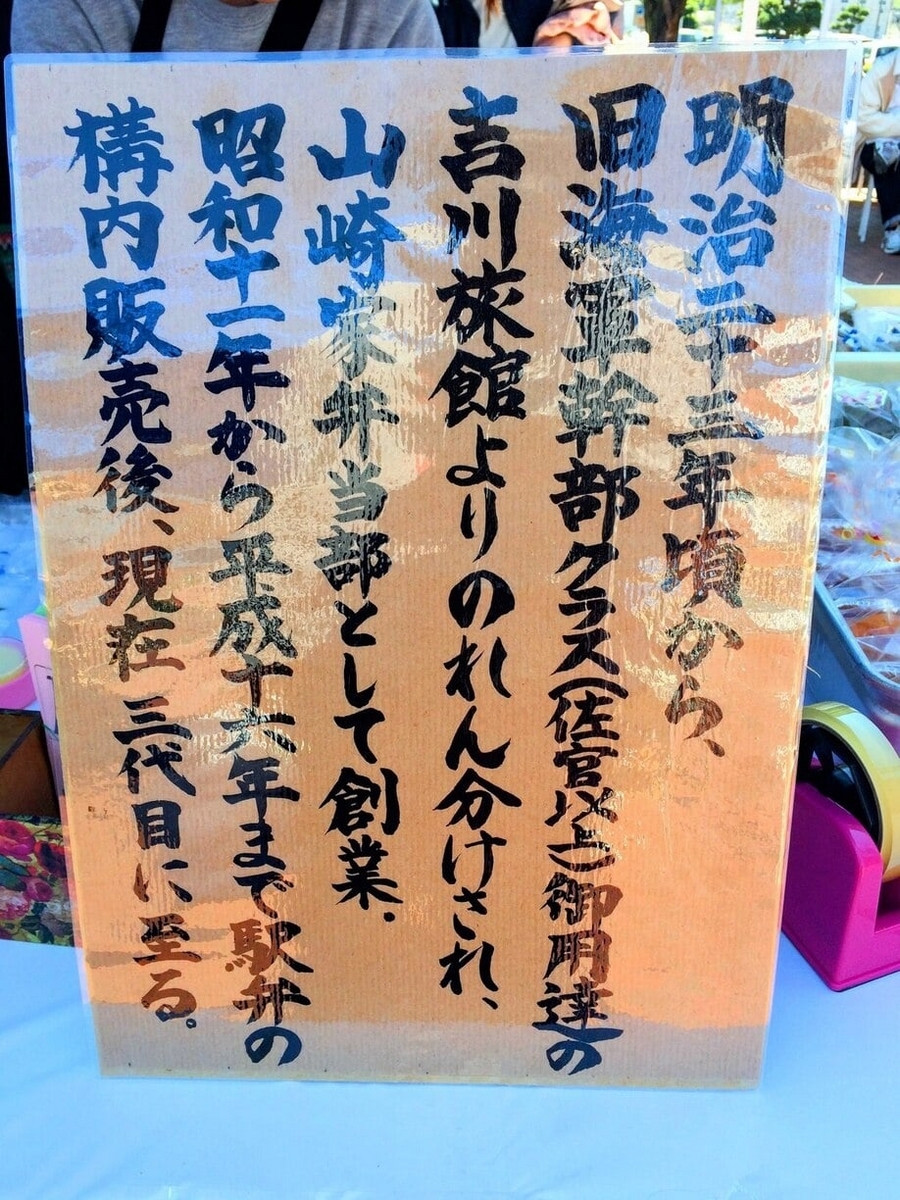 明治二十三年頃から、
旧海軍幹部クラス(佐官以上)御用達の
吉川旅館よりのれん分けされ、
山崎家弁当部として創業.
昭和十一年から平成十六年まで駅弁の
構内販売後、現在三代目に至る。